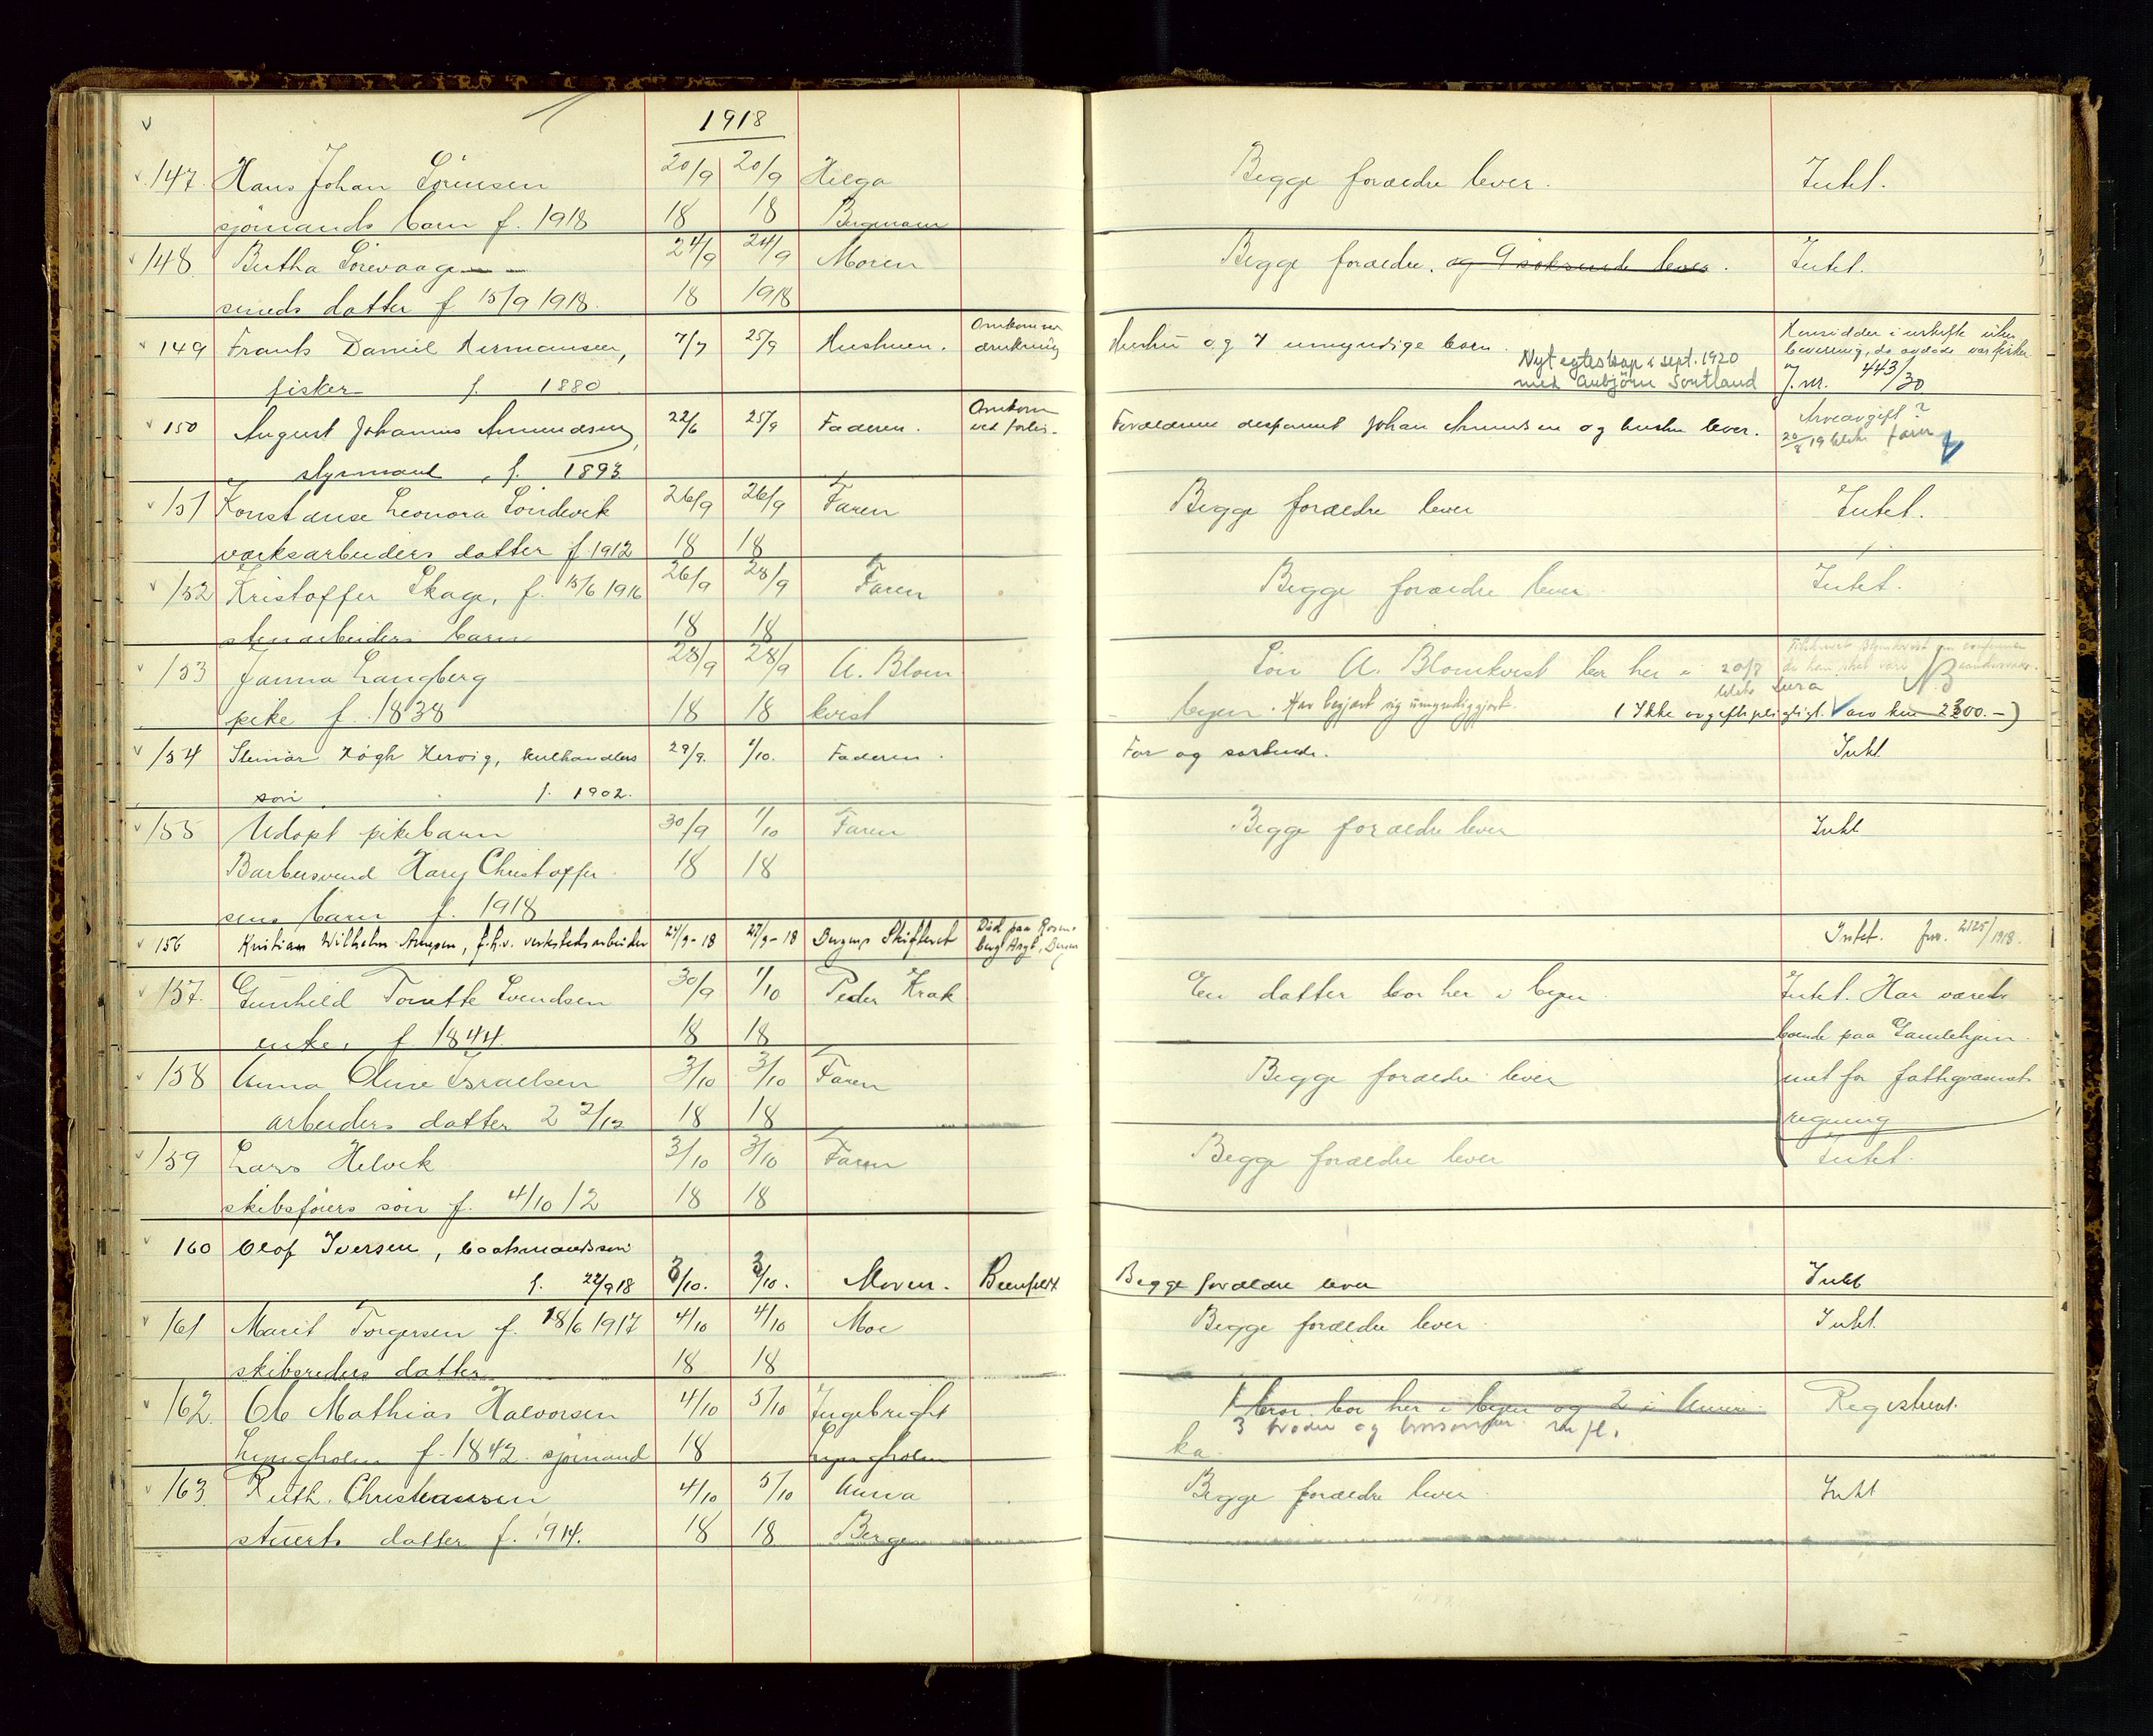 1918
147. Hans Johan Sörensen 20/9 20/9 Helga Begge forældre lever. Intet.
sjömands barn f. 1918 18 18 Bergmann
148. Bertha Sörevaag 24/9 24/9 Moren Begge forældre. og 9 söskende lever. Intet.
smeds datter f 15/9 1918. 18 1918
149 Frants Daniel Hermansen, 7/7 25/9 Hustruen. Omkom ved drukning Hustru og 7 umyndige barn.
fisker f. 1880 Nyt egteskap i sept. 1920
J. nr. 443/30
150 August Johannes Amundsen, 22/6 25/9 Faderen. Omkom ved forlis. Forældrene Johan Amundsen og hustru lever. Arveavgift?
styrmand, f. 1893
151 Konstanse Leonora Söndevik 26/9 26/9 Faren Begge forældre lever Intet.
verksarbeiders datter f. 1912 18 18
152 Kristoffer Skage, f. 15/6 1916 26/9 28/9 Faren Begge forældre lever Intet.
stenarbeiders barn 18 18
153 Janna Langberg 28/9 28/9 A. Blom Sön A. Blomkvist bor her i NB
pike f. 1838 18 18 kvist byen. Har begjært sig umyndiggjort. (Ikke avgiftspligtigt. arv kun 2300.-)
154 Steinar Högh Hervig, kulhandlers 29/9. 1/10. Faderen. Far og söskende. Intet
sön f. 1902.
155 Udöpt pikebarn 30/9 1/10 Faren Begge forældre lever Intet
Barbersvend Hary Christoffer 18 18
sens barn f. 1918
156 Kristian Wilhelm Arnesen, f.h.v. verkstedsarbeider 24/9-18 27/9-18 Bergens Skifteret Död paa Rosenbergs Asyl, Bergen Intet. Jnr. 2125/1918.
157. Gunhild Tonette Svendsen 30/9 1/10 Peder Krak En datter bor her i byen Intet. Har været
enke, f 1844 18 18 boende paa Gamlehjem
158 Anna Oline Israelsen 3/10 3/10 Faren Begge forældre lever met for fattigvæsenets
arbeiders datter 2 2/12 18 18 regning
159 Lars Helvik 3/10 3/10 Faren Begge forældre lever Intet.
skibsförers sön f. 4/10 12 18 18
160 Olof Iversen, baatsmandssön
f. 22/9 18 3/10. 3/10. Moren. Begge forældre lever Intet
161 Marit Torgersen f. 18/6 1917 4/10 4/10 Moe Begge forældre lever. Intet.
skibsreders datter 18 18
162. Ole Mathias Halvorsen 4/10 5/10 Ingebright 1 bror bor her i byen og 2 i Ameri Registreret.
Lyngholm f. 1842 sjömand 18 Lyngholm ka 3 brödre og
163. Ruth. Christiansen 4/10 5/10 Anna Begge forældre lever. Intet
stuerts datter f. 1914. 18 18 Berge